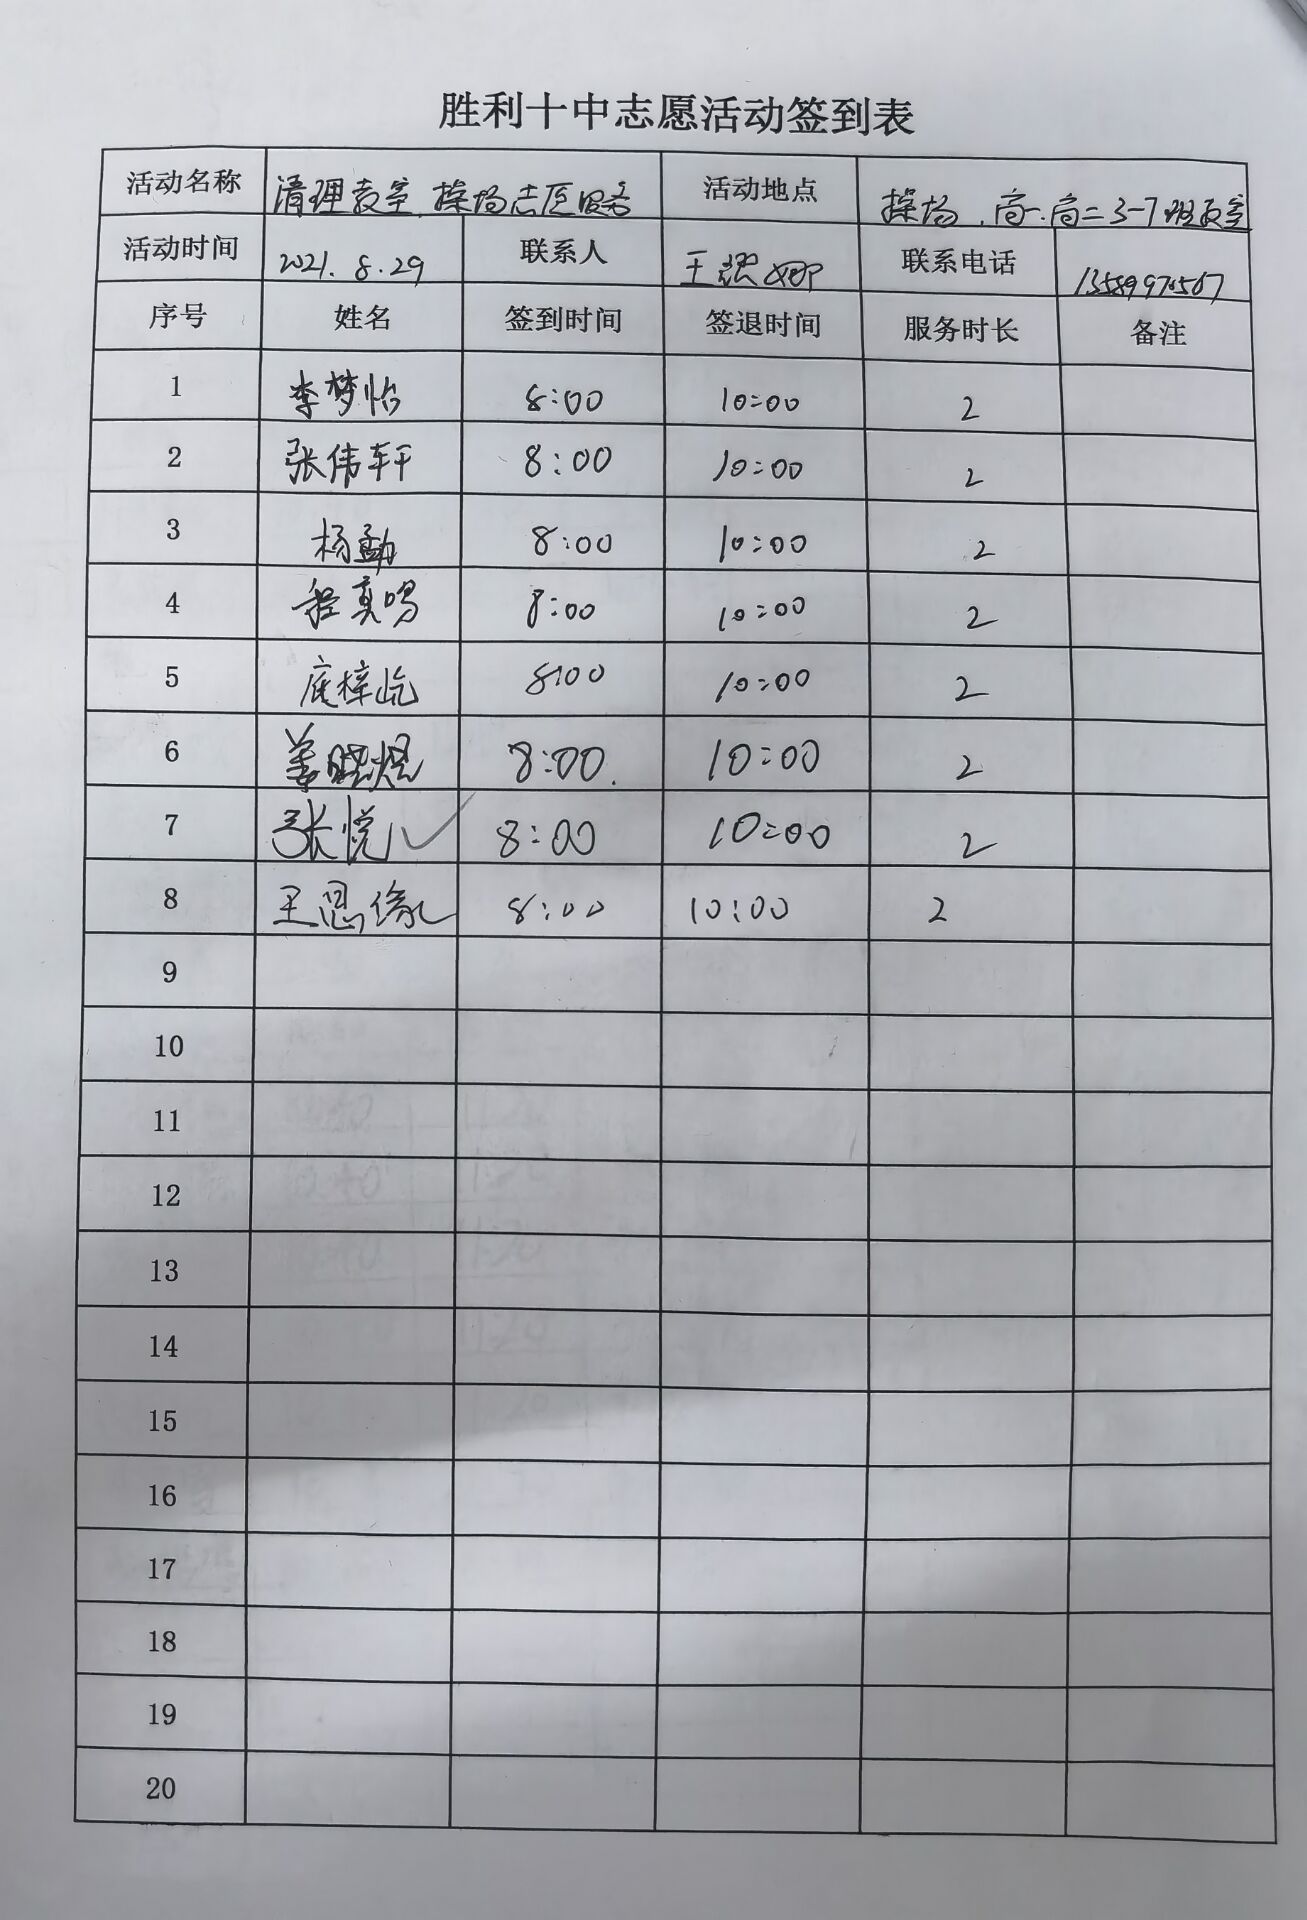 胜利十中志愿活动签到表
活动名称 清理教室、操场志愿服务 活动地点 操场、高一、高二3-7班教室
活动时间 2021.8.29 联系人 王 娜 联系电话
序号 姓名 签到时间 签退时间 服务时长 备注
1 李梦怡 8:00 10:00 2
2 张伟轩 8:00 10:00 2
3 杨勐 8:00 10:00 2
4 程真鸣 8:00 10:00 2
5 庞梓屹 8:00 10:00 2
6 姜晓煜 8:00. 10:00 2
7 张悦 8:00 10:00 2
8 王思缘 8:00 10:00 2
9
10
11
12
13
14
15
16
17
18
19
20